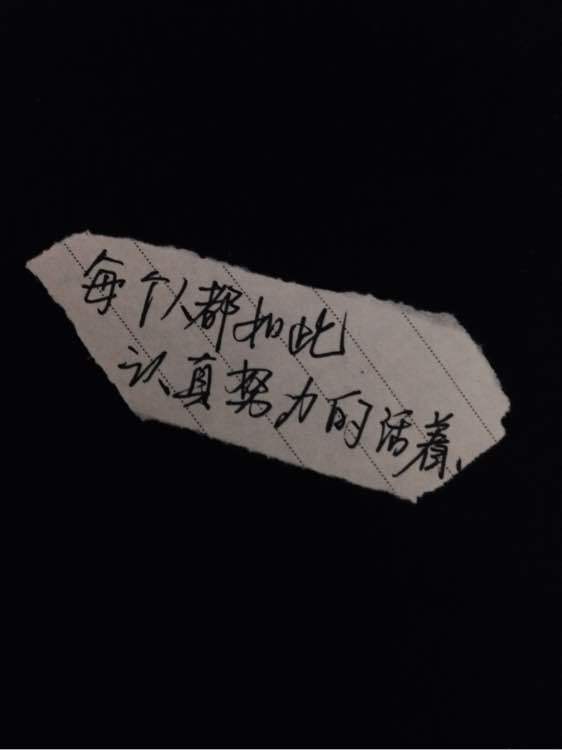 每个人都如此
认真努力的活着、